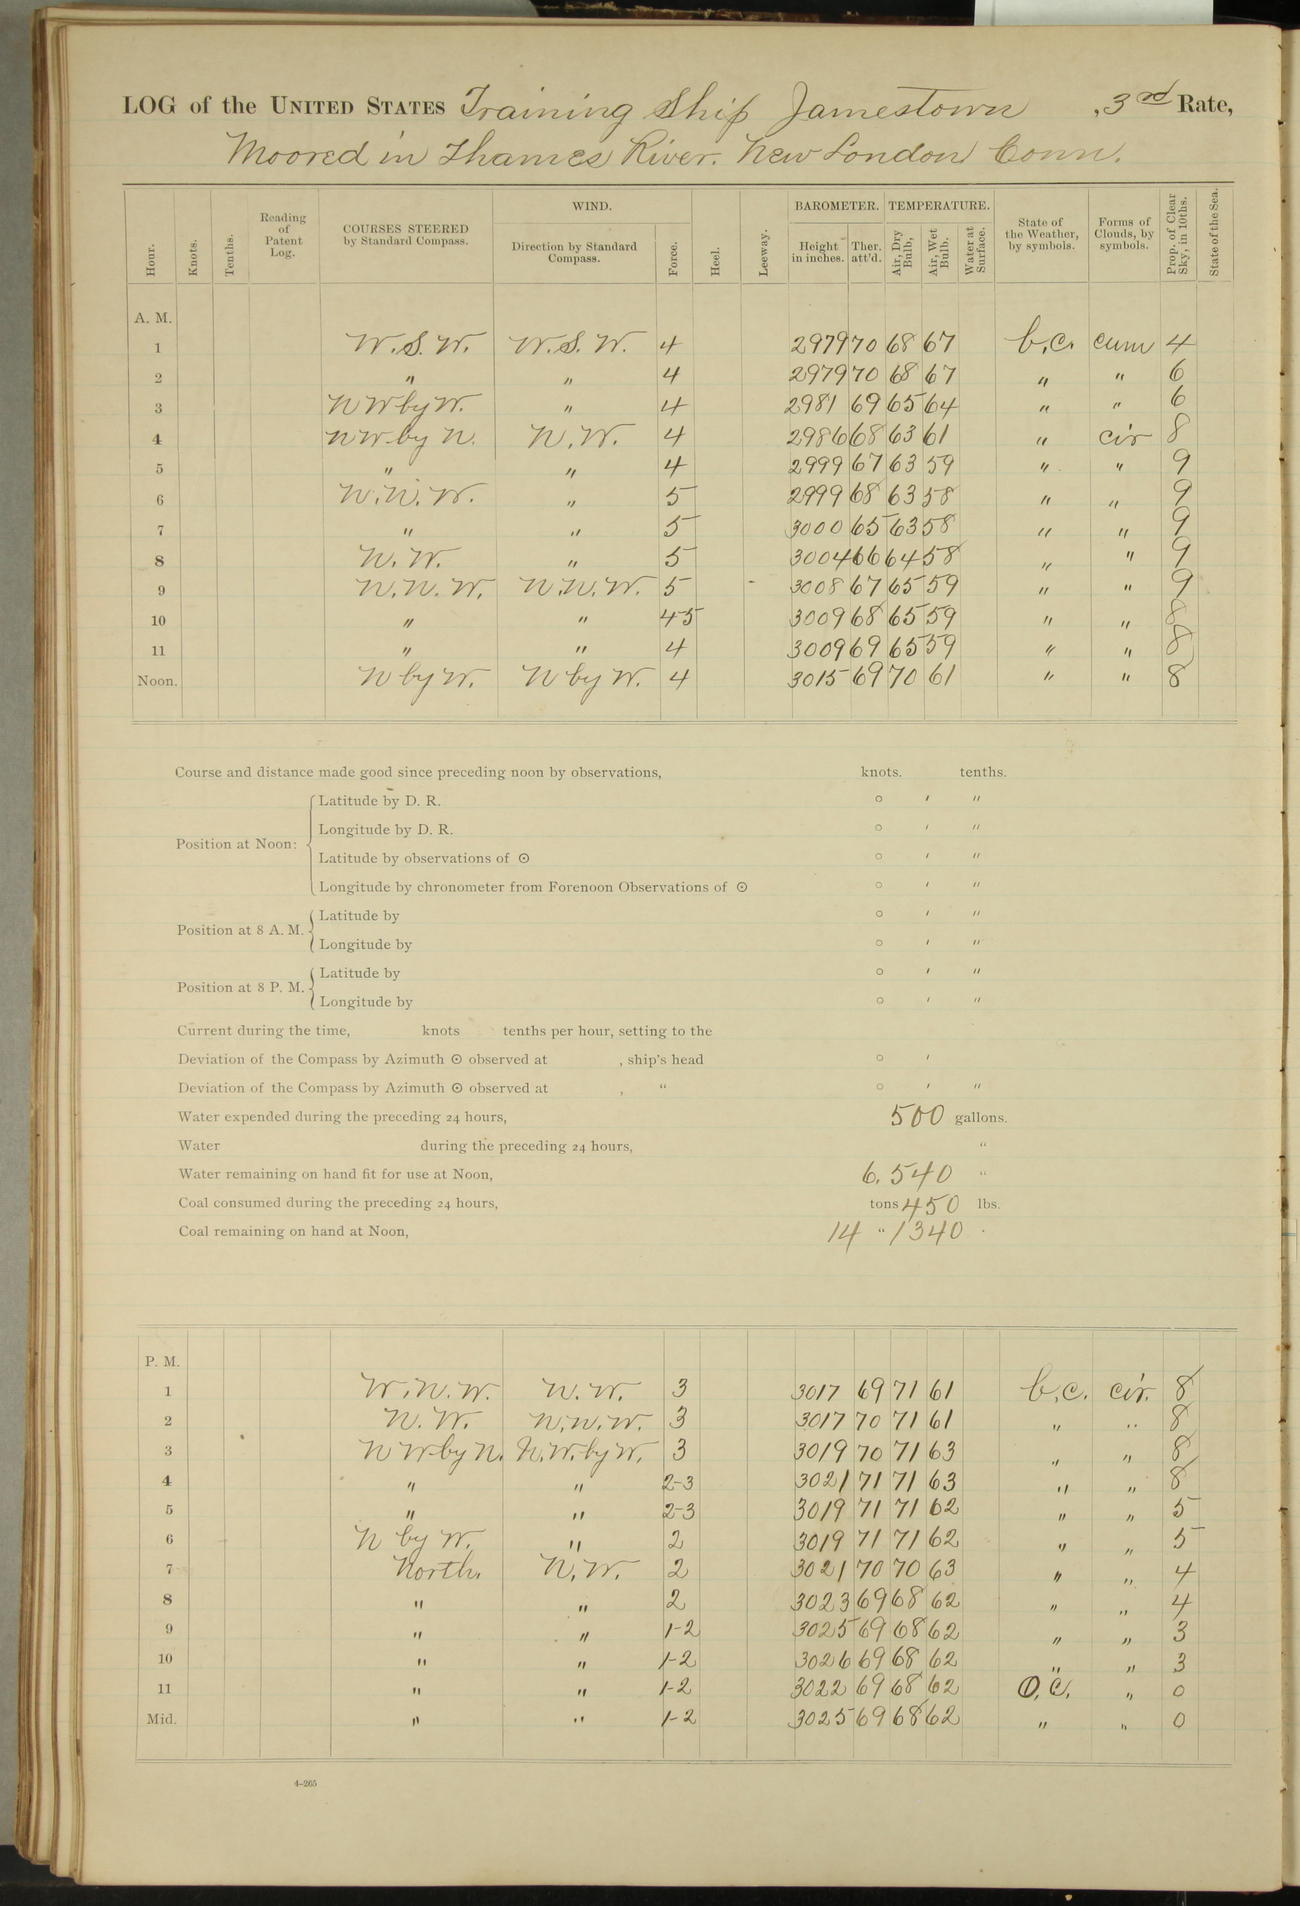 LOG of the UNITED STATES Training Ship Jamestown , 3rd Rate,
Moored in Thames River. New London Conn.
Hour. Knots. Tenths. Reading of Patent Log. COURSES STEERED by Standard Compass. WIND. Direction by Standard Compass. Force. Heel. Leeway. BAROMETER. Height in inches. Ther. att'd. TEMPERATURE. Air, Dry Bulb, Air, Wet Bulb. Water at Surface. State of the Weather, by symbols. Forms of Clouds, by symbols. Prop. of Clear Sky, in 10ths. State of the Sea.
A. M.
1 W.S.W. W.S.W. 4 2979 70 68 67 b.c. cum 4
2 " " 4 2979 70 68 67 " " 6
3 NW by W. " 4 2981 69 65 64 " " 6
4 NW by N. N.W. 4 2986 68 63 61 " cir 8
5 " " 4 2999 67 63 59 " " 9
6 N.N.W. " 5 2999 68 63 58 " " 9
7 " " 5 3000 65 63 58 " " 9
8 N.W. " 5 3004 66 64 58 " " 9
9 N.N.W. N.N.W. 5 3008 67 65 59 " " 9
10 " " 4-5 3009 68 65 59 " " 8
11 " " 4 3009 69 65 59 " " 8
Noon. N by W. N by W. 4 3015 69 70 61 " " 8
Course and distance made good since preceding noon by observations, knots. tenths.
Position at Noon: Latitude by D. R. ° ′ ″
Longitude by D. R. ° ′ ″
Latitude by observations of ☉ ° ′ ″
Longitude by chronometer from Forenoon Observations of ☉ ° ′ ″
Position at 8 A. M. Latitude by ° ′ ″
Longitude by ° ′ ″
Position at 8 P. M. Latitude by ° ′ ″
Longitude by ° ′ ″
Current during the time, knots tenths per hour, setting to the
Deviation of the Compass by Azimuth ☉ observed at , ship's head ° ′
Deviation of the Compass by Azimuth ☉ observed at , " ° ′ ″
Water expended during the preceding 24 hours, 500 gallons.
Water during the preceding 24 hours, "
Water remaining on hand fit for use at Noon, 6.540 "
Coal consumed during the preceding 24 hours, tons 450 lbs.
Coal remaining on hand at Noon, 14 " 1340
P. M.
1 W.N.W. N.W. 3 3017 69 71 61 b.c. cir. 8
2 N.W. N.N.W. 3 3017 70 71 61 " " 8
3 NW by N. N.W. by W. 3 3019 70 71 63 " " 8
4 " " 2-3 3021 71 71 63 " " 8
5 " " 2-3 3019 71 71 62 " " 5
6 N by W. " 2 3019 71 71 62 " " 5
7 North. N.W. 2 3021 70 70 63 " " 4
8 " " 2 3023 69 68 62 " " 4
9 " " 1-2 3025 69 68 62 " " 3
10 " " 1-2 3026 69 68 62 " " 3
11 " " 1-2 3022 69 68 62 O.C. " 0
Mid. " " 1-2 3025 69 68 62 " " 0
4-265